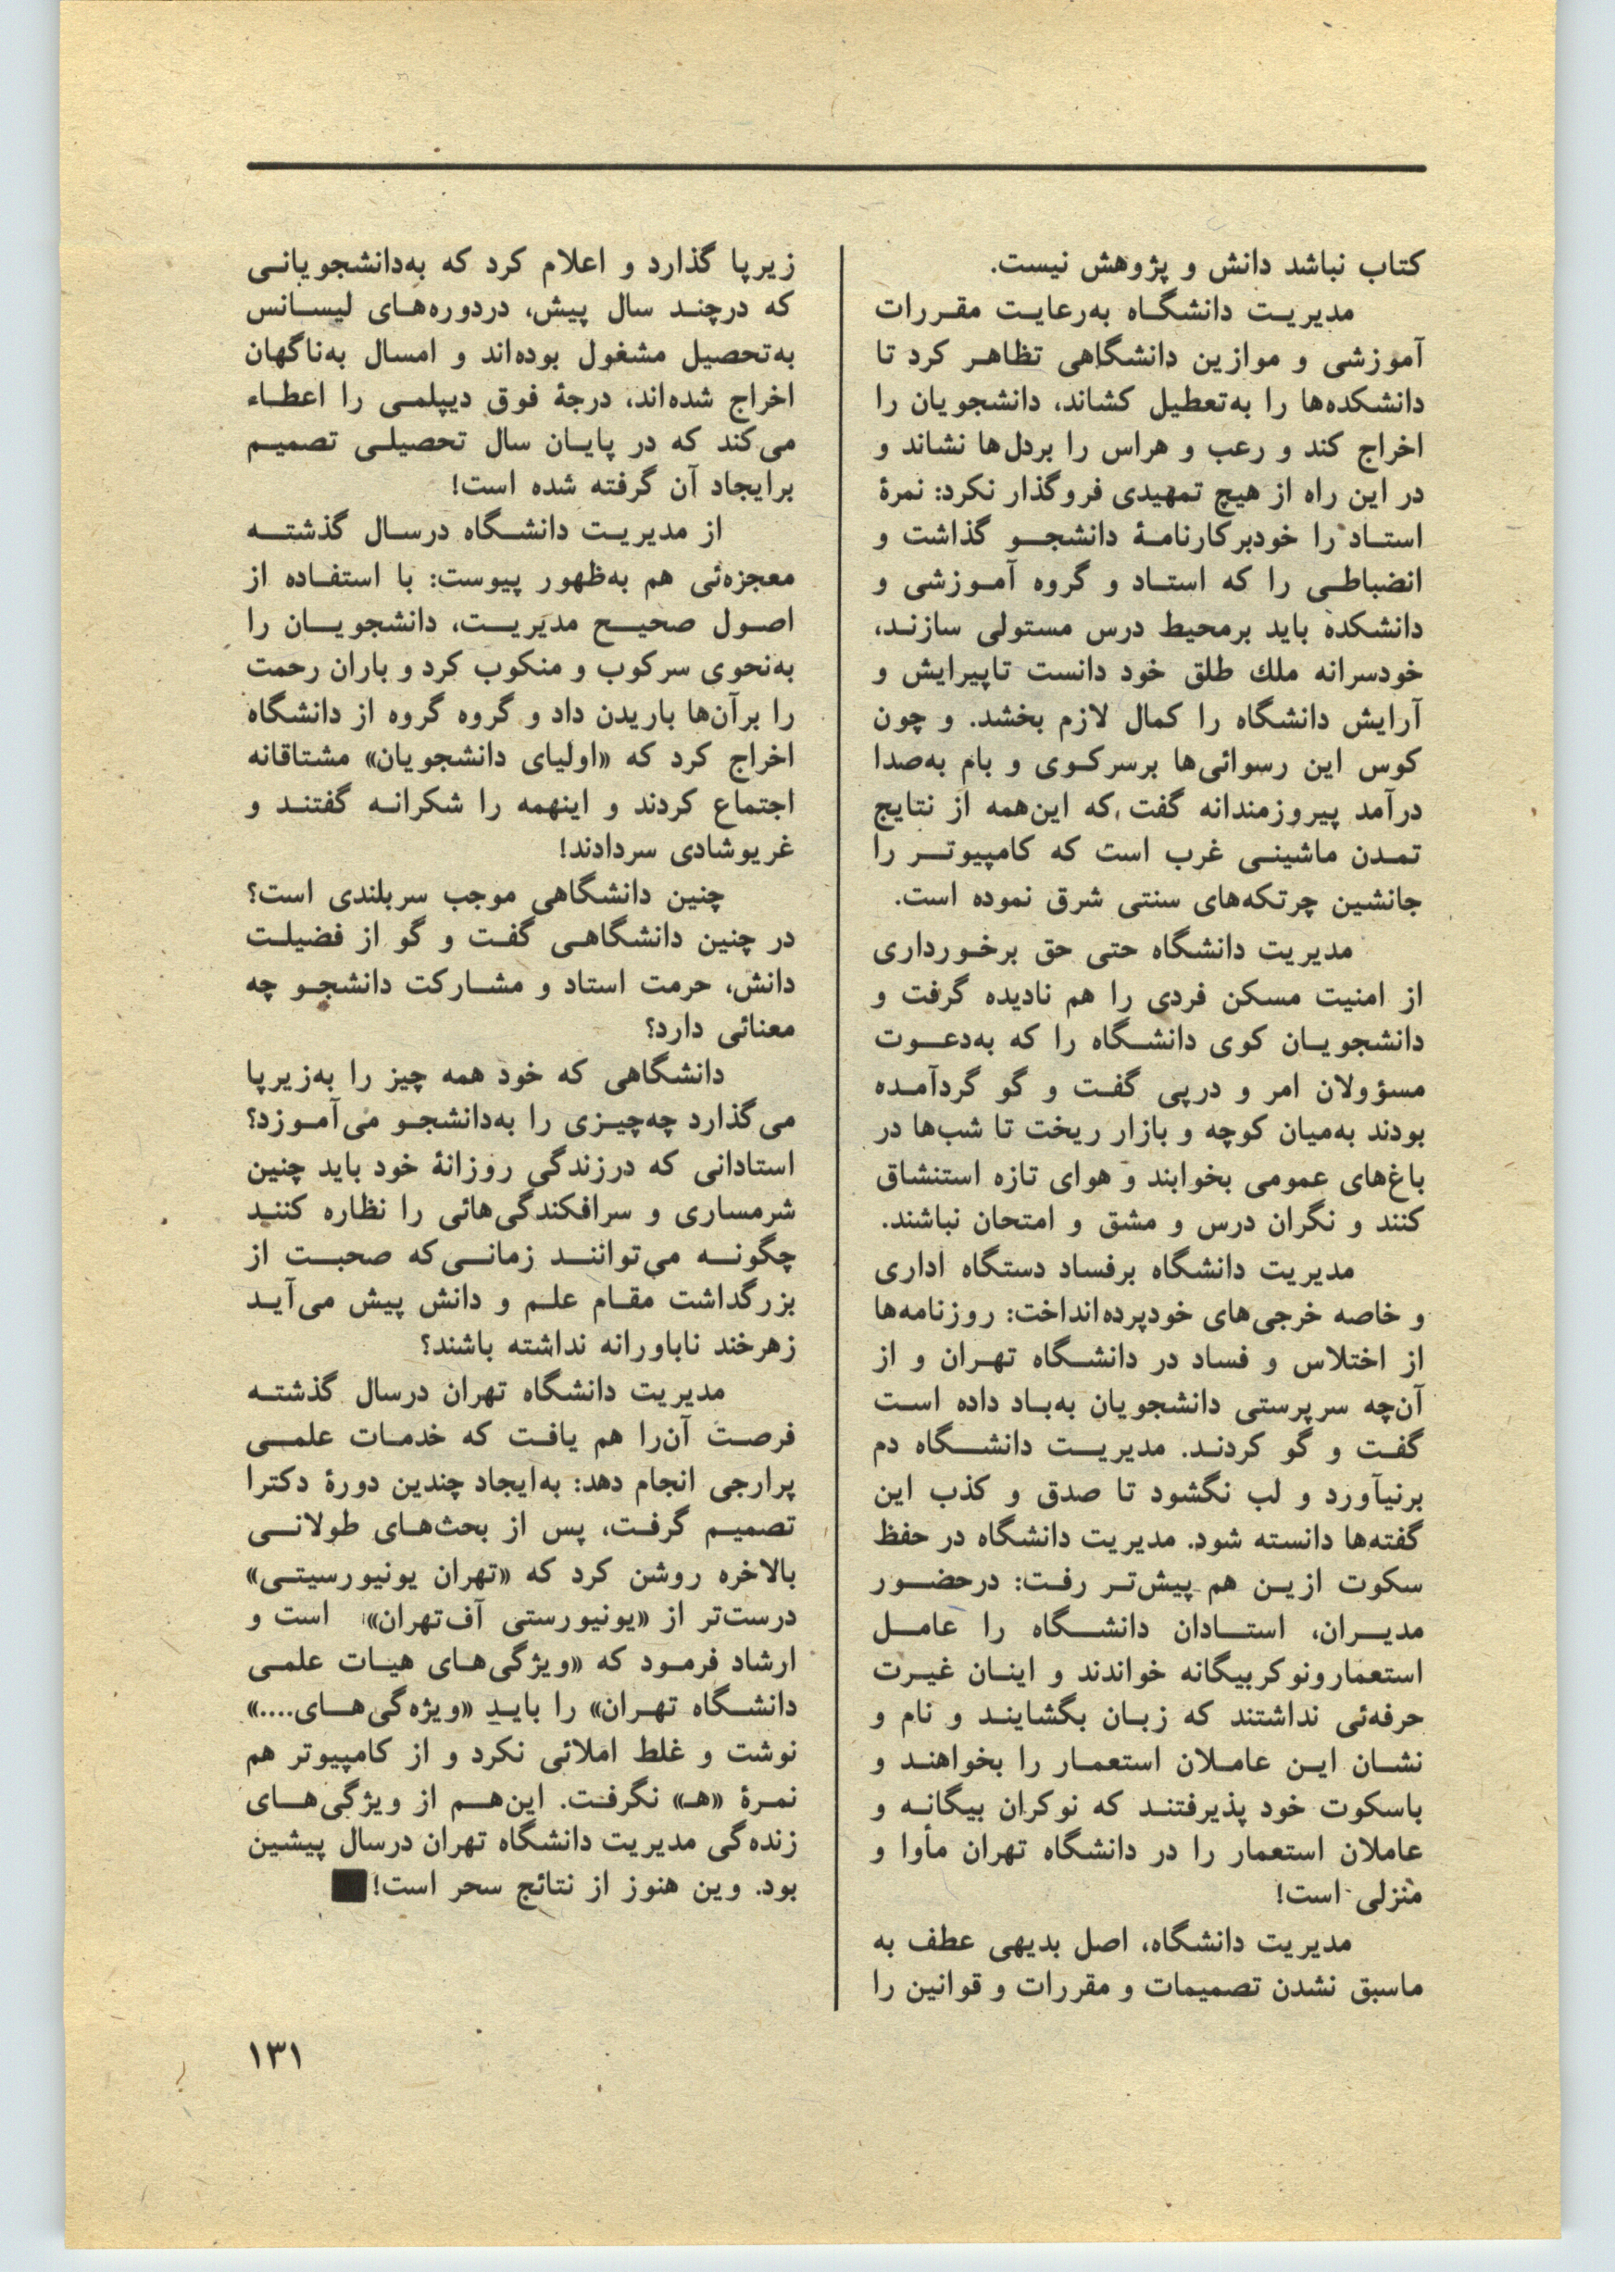 کتاب نباشد دانش و پژوهش نیست.
مدیریت دانشگاه به‌رعایت مقررات
آموزشی و موازین دانشگاهی تظاهر کرد تا
دانشکده‌ها را به‌تعطیل کشاند، دانشجویان را
اخراج کند و رعب و هراس را بردل‌ها نشاند و
در این راه از هیچ تمهیدی فروگذار نکرد: نمرهٔ
استاد را خودبرکارنامهٔ دانشجو گذاشت و
انضباطی را که استاد و گروه آموزشی و
دانشکده باید برمحیط درس مستولی سازند،
خودسرانه ملك طلق خود دانست تاپیرایش و
آرایش دانشگاه را کمال لازم بخشد. و چون
کوس این رسوائی‌ها برسرکوی و بام به‌صدا
درآمد پیروزمندانه گفت که این‌همه از نتایج
تمدن ماشینی غرب است که کامپیوتر را
جانشین چرتکه‌های سنتی شرق نموده است.
مدیریت دانشگاه حتی حق برخورداری
از امنیت مسکن فردی را هم نادیده گرفت و
دانشجویان کوی دانشگاه را که به‌دعوت
مسؤولان امر و درپی گفت و گو گردآمده
بودند به‌میان کوچه و بازار ریخت تا شب‌ها در
باغ‌های عمومی بخوابند و هوای تازه استنشاق
کنند و نگران درس و مشق و امتحان نباشند.
مدیریت دانشگاه برفساد دستگاه اداری
و خاصه خرجی‌های خودپرده‌انداخت: روزنامه‌ها
از اختلاس و فساد در دانشگاه تهران و از
آن‌چه سرپرستی دانشجویان به‌باد داده است
گفت و گو کردند. مدیریت دانشگاه دم
برنیآورد و لب نگشود تا صدق و کذب این
گفته‌ها دانسته شود. مدیریت دانشگاه در حفظ
سکوت ازین هم پیش‌تر رفت: درحضور
مدیران، استادان دانشگاه را عامل
استعمارونوکربیگانه خواندند و اینان غیرت
حرفه‌ئی نداشتند که زبان بگشایند و نام و
نشان این عاملان استعمار را بخواهند و
باسکوت خود پذیرفتند که نوکران بیگانه و
عاملان استعمار را در دانشگاه تهران مأوا و
منزلی است!
مدیریت دانشگاه، اصل بدیهی عطف به
ماسبق نشدن تصمیمات و مقررات و قوانین را
زیرپا گذارد و اعلام کرد که به‌دانشجویانی
که درچند سال پیش، دردوره‌های لیسانس
به‌تحصیل مشغول بوده‌اند و امسال به‌ناگهان
اخراج شده‌اند، درجهٔ فوق دیپلمی را اعطاء
می‌کند که در پایان سال تحصیلی تصمیم
برایجاد آن گرفته شده است!
از مدیریت دانشگاه درسال گذشته
معجزه‌ئی هم به‌ظهور پیوست: با استفاده از
اصول صحیح مدیریت، دانشجویان را
به‌نحوی سرکوب و منکوب کرد و باران رحمت
را برآن‌ها باریدن داد و گروه گروه از دانشگاه
اخراج کرد که «اولیای دانشجویان» مشتاقانه
اجتماع کردند و اینهمه را شکرانه گفتند و
غریوشادی سردادند!
چنین دانشگاهی موجب سربلندی است؟
در چنین دانشگاهی گفت و گو از فضیلت
دانش، حرمت استاد و مشارکت دانشجو چه
معنائی دارد؟
دانشگاهی که خود همه چیز را به‌زیرپا
می‌گذارد چه‌چیزی را به‌دانشجو می‌آموزد؟
استادانی که درزندگی روزانهٔ خود باید چنین
شرمساری و سرافکندگی‌هائی را نظاره کنند
چگونه می‌توانند زمانی‌که صحبت از
بزرگداشت مقام علم و دانش پیش می‌آید
زهرخند ناباورانه نداشته باشند؟
مدیریت دانشگاه تهران درسال گذشته
فرصت آن‌را هم یافت که خدمات علمی
پرارجی انجام دهد: به‌ایجاد چندین دورهٔ دکترا
تصمیم گرفت، پس از بحث‌های طولانی
بالاخره روشن کرد که «تهران یونیورسیتی»
درست‌تر از «یونیورستی آف‌تهران» است و
ارشاد فرمود که «ویژگی‌های هیات علمی
دانشگاه تهران» را باید «ویژه‌گی‌های....»
نوشت و غلط املائی نکرد و از کامپیوتر هم
نمرهٔ «هـ» نگرفت. این‌هم از ویژگی‌های
زنده‌گی مدیریت دانشگاه تهران درسال پیشین
بود. وین هنوز از نتائج سحر است!
۱۳۱